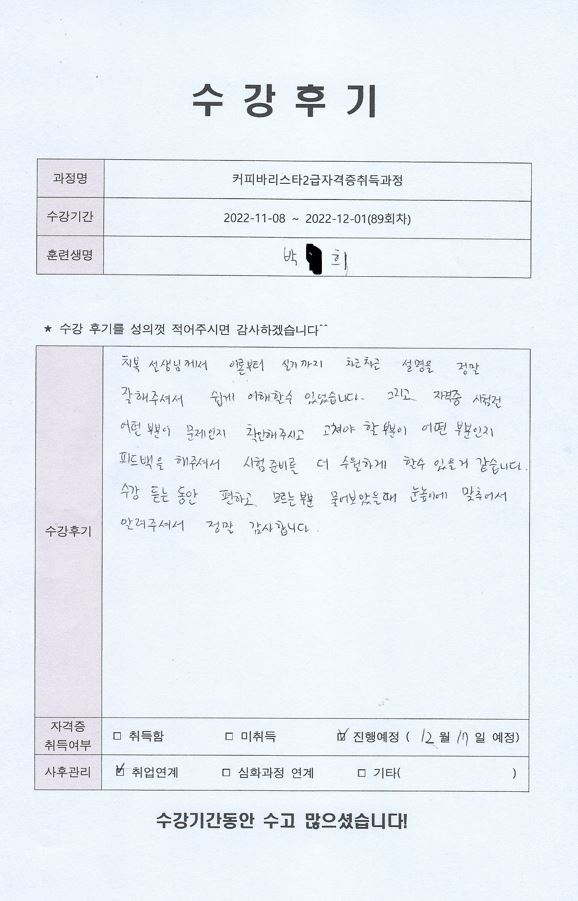 수 강 후 기
과정명 커피바리스타2급자격증취득과정
수강기간 2022-11-08 ~ 2022-12-01(89회차)
훈련생명 박 희
★ 수강 후기를 성의껏 적어주시면 감사하겠습니다^^
선생님께서 이론부터 실기까지 차근차근 설명을 정말
잘해주셔서 쉽게 이해할수 있었습니다. 그리고 자격증 시험전
어떤 부분이 문제인지 확인해주시고 고쳐야 할 부분이 어떤 부분인지
피드백을 해주셔서 시험준비를 더 수월하게 할수 있을거 같습니다.
수강 듣는 동안 편하고, 모르는 부분 물어보았을때 눈높이에 맞추어서
알려주셔서 정말 감사합니다.
수강후기
자격증
취득여부 취득함 미취득 진행예정 ( 12 월 17 일 예정)
사후관리 취업연계 심화과정 연계 기타( )
수강기간동안 수고 많으셨습니다!